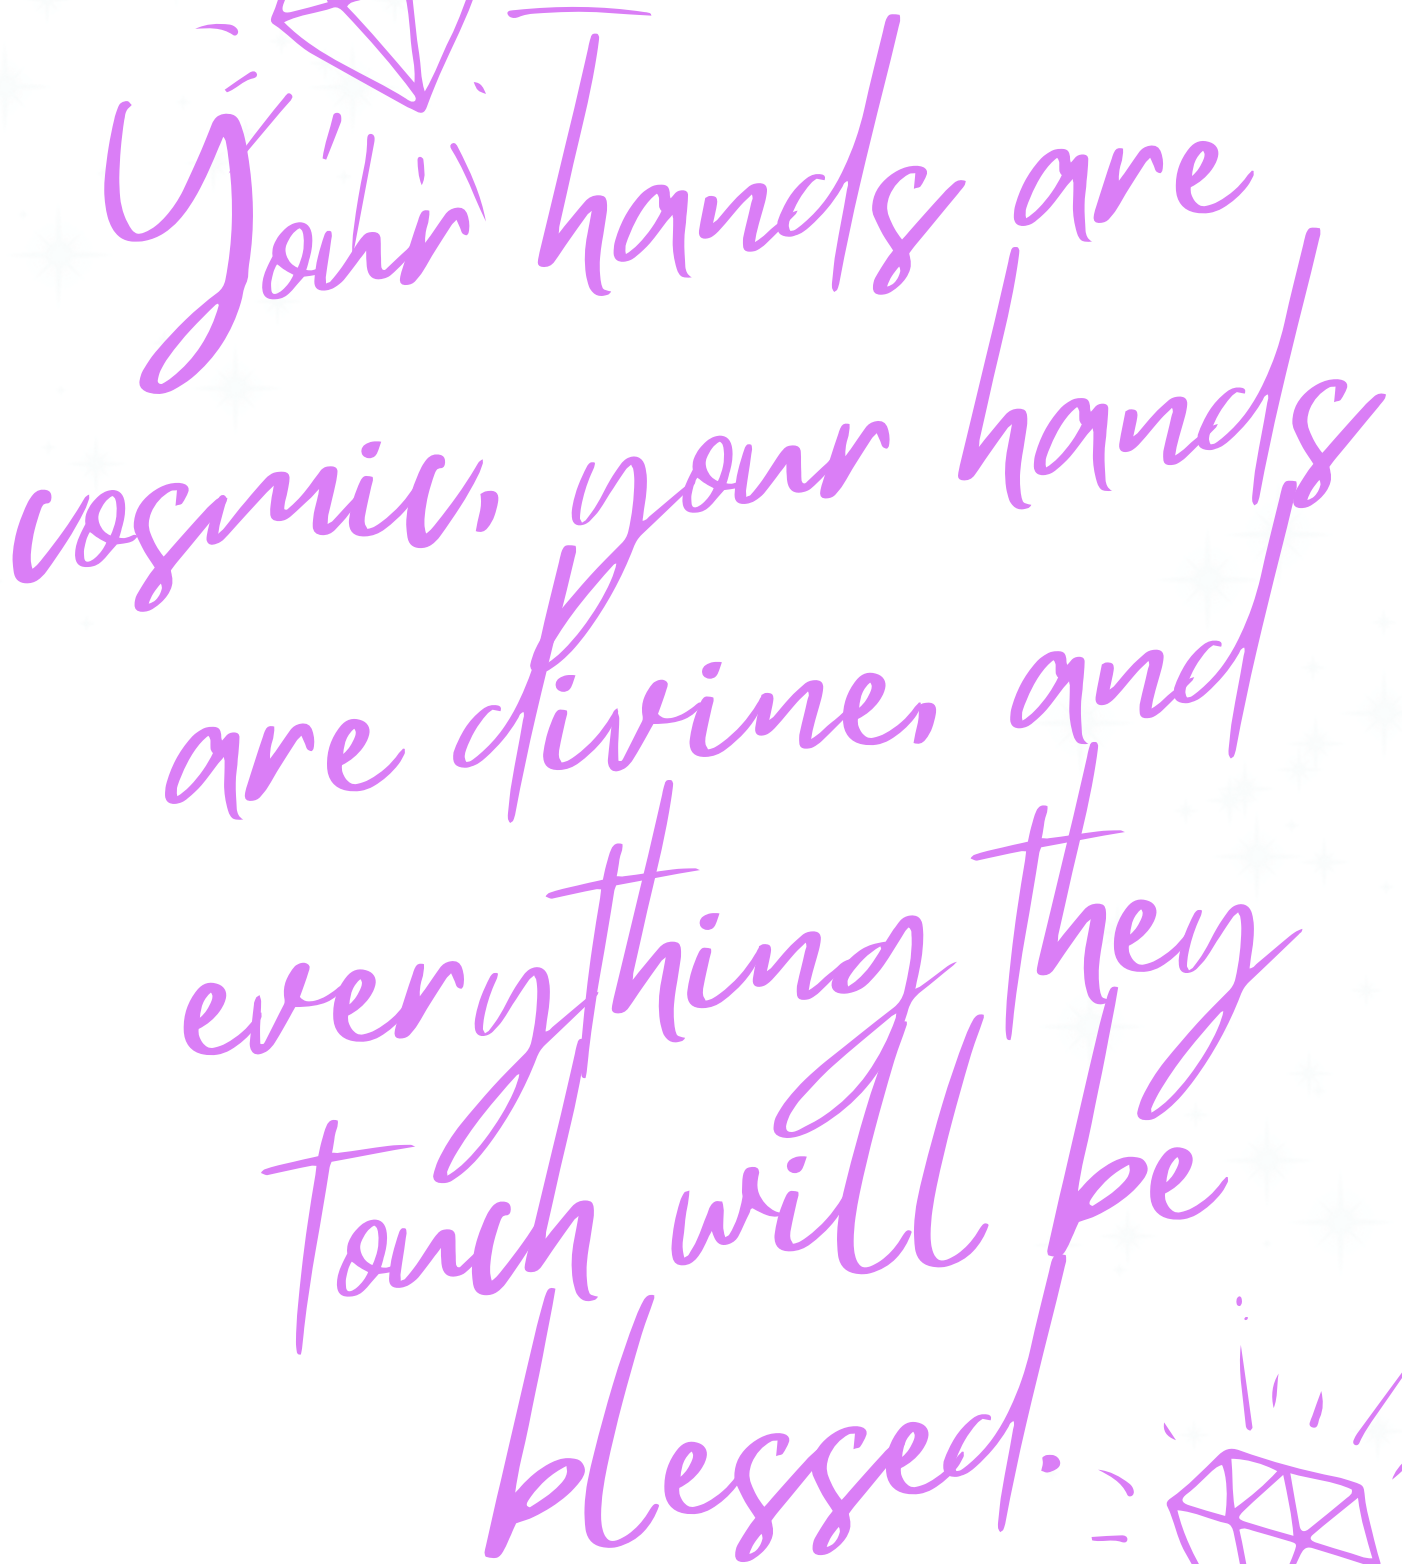 Your hands are
cosmic, your hands
are divine, and
everything they
touch will be
blessed.